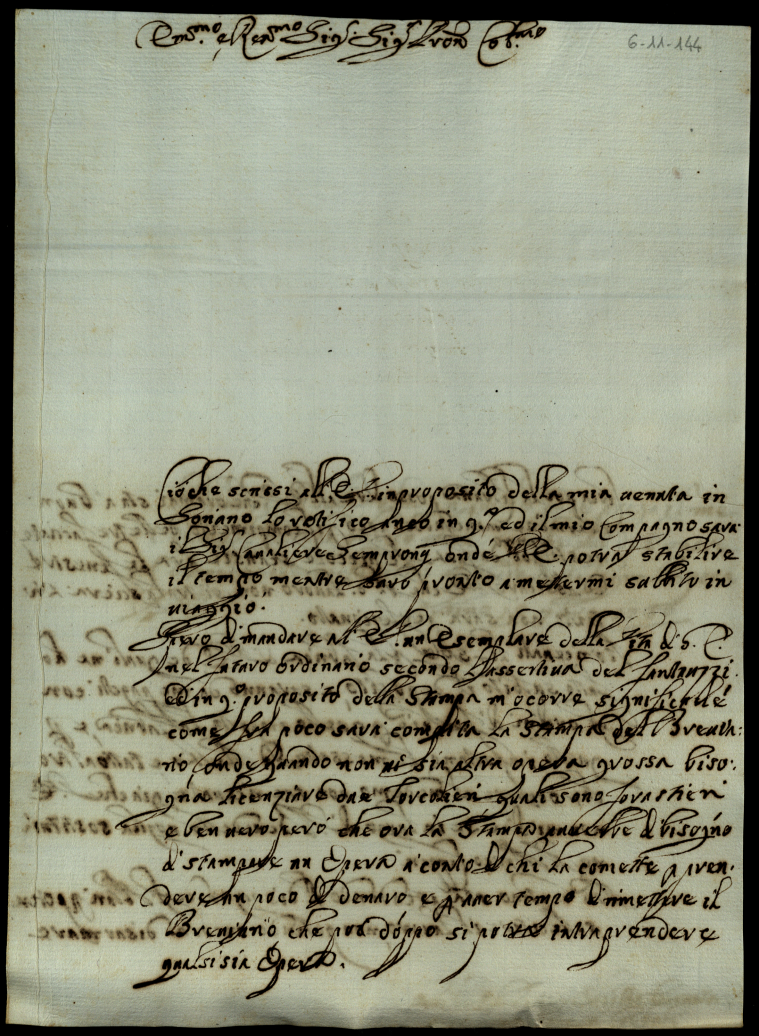 Em.mo e Ren.mo Sig.r Sig.r Pron Col.mo
6-11-144
Ciò che scrissi all'E. in proposito della mia venuta in
Soriano lo ratifico anco in q.a ed il mio Compagno sarà
il Sig. Cavaliere Sempronij onde V.E. potrà stabilire
il tempo mentre sarò pronto a mettermi subbito in
viaggio.
Spero di mandare al E. un Esemplare della Vita di S. T.
nel futuro ordinario secondo l'assertiva del Fantauzzi
ed in q.o proposito della Stampa m'ocorre significarle
come fra poco sarà compita la Stampa del Brevia:
rio onde quando non vi sia altra opera grossa biso:
gna licenziare due Torcolieri quali sono forastieri
e ben vero però che ora la Stampa haverebbe di bisogno
di stampare un Opera a conto di chi la comette p pren:
dere un poco di denaro e p haver tempo di rimettere il
Breviario che poi doppo si potrà intraprendere
qualsisia Opera.